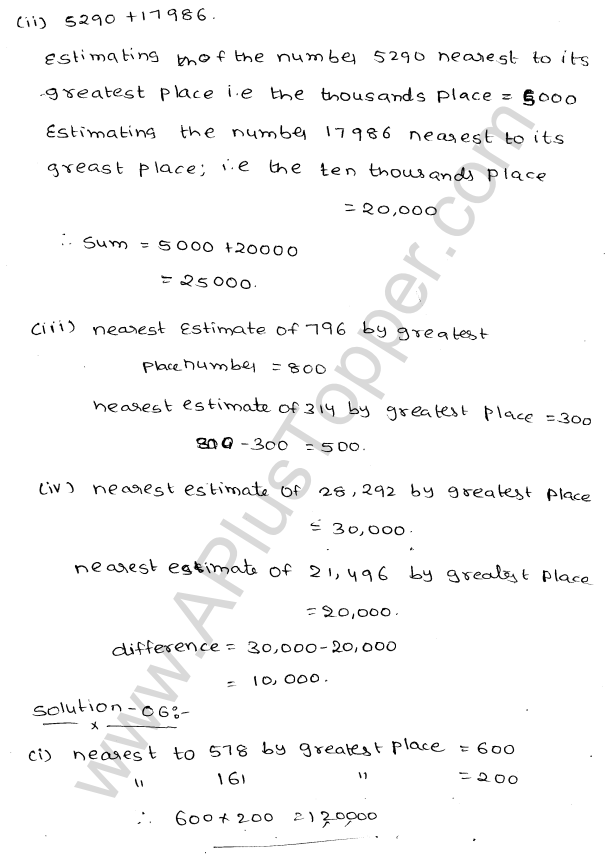 (ii) 5290 + 17986.
Estimating of the number 5290 nearest to its
greatest place i.e the thousands place = 5000
Estimating the number 17986 nearest to its
greast place; i.e the ten thousands place
= 20,000
∴ Sum = 5000 + 20000
= 25000.
(iii) nearest Estimate of 796 by greatest
place number = 800
nearest estimate of 314 by greatest place = 300
800 - 300 = 500.
(iv) nearest estimate of 28,292 by greatest place
= 30,000.
nearest estimate of 21,496 by greatest place
= 20,000.
difference = 30,000 - 20,000
= 10,000.
Solution - 06:-
(i) nearest to 578 by greatest place = 600
" 161 " = 200
∴ 600 × 200 = 120000
www.APlusTopper.com